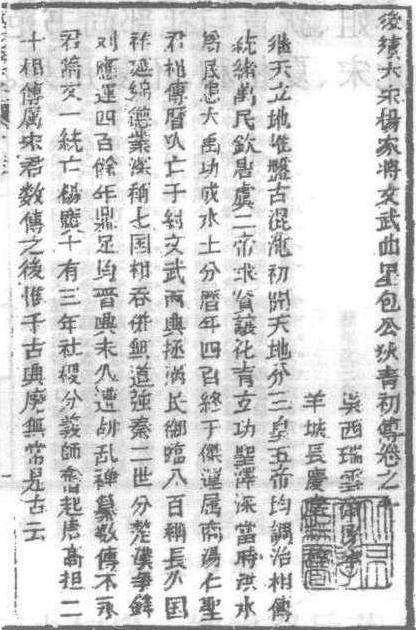 後續大宋楊家將文武曲星包公狄青初傳卷之一
吳西瑞雲
羊城長慶堂
繼天立地惟盤古混沌初開天地分三皇五帝均調治相傳
統緒萬民欽唐虞二帝求賢讓化育立功聖澤深當時洪水
為民患大禹功成水土分曆年四百終于傑運属商湯仁聖
君相傳曆久亡于紂文武兩興拯溺民御臨八百稱長久国
祚延綿德業深称七囯相吞併無道強秦二世分楚漢爭鋒
刘應運四百餘年鼎足均晋興未久遭胡乱禅纂數傳不永
君隋文一統亡楊廣十有三年社稷分義師奮起唐高担二
十相傳属宋君数傳之後惟于古典廢無常是古云